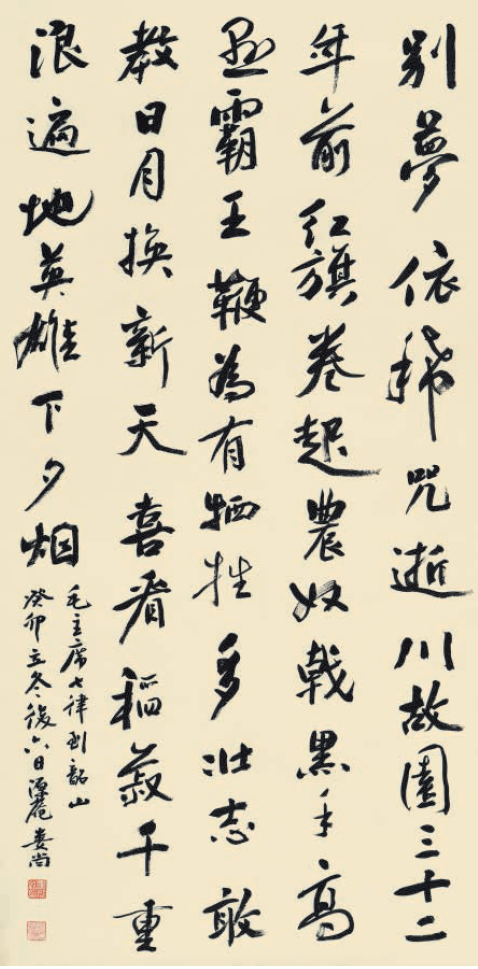 别夢依稀咒逝川故園三十二
年前红旗卷起農奴戟黑手高
悬霸王鞭為有牺牲多壮志敢
教日月换新天喜看稻菽千重
浪遍地英雄下夕烟
毛主席七律到韶山
癸卯立冬後六日娄尚